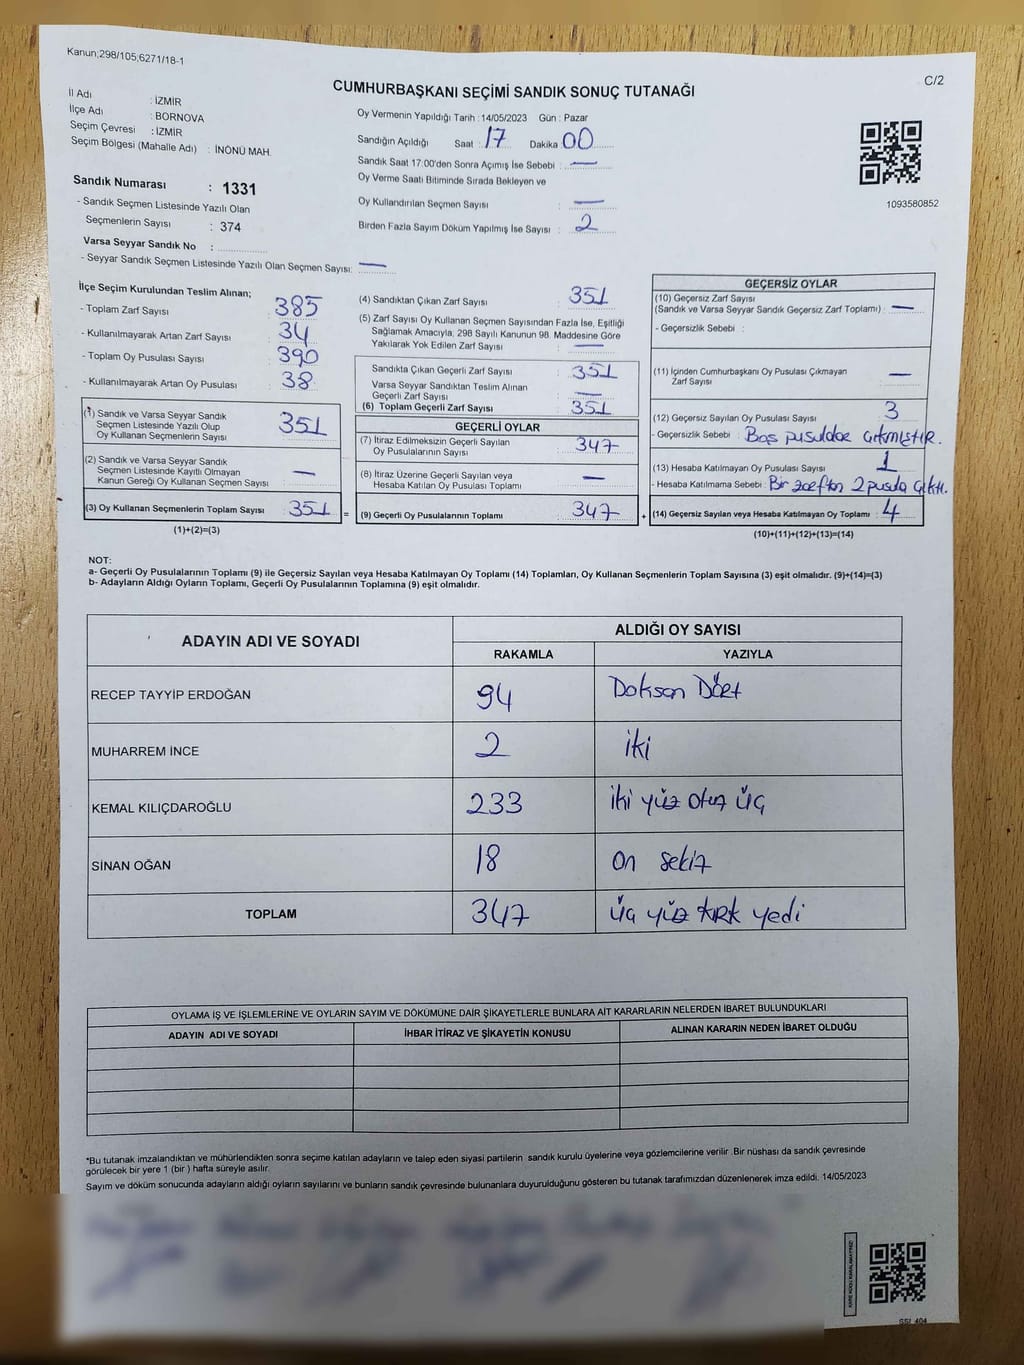 Kanun;298/105;6271/18-1
C/2
CUMHURBAŞKANI SEÇİMİ SANDIK SONUÇ TUTANAĞI
İl Adı : İZMİR
İlçe Adı : BORNOVA
Seçim Çevresi : İZMİR
Seçim Bölgesi (Mahalle Adı) : İNÖNÜ MAH.
Sandık Numarası : 1331
- Sandık Seçmen Listesinde Yazılı Olan
Seçmenlerin Sayısı : 374
Varsa Seyyar Sandık No :
- Seyyar Sandık Seçmen Listesinde Yazılı Olan Seçmen Sayısı: —
Oy Vermenin Yapıldığı Tarih : 14/05/2023 Gün : Pazar
Sandığın Açıldığı Saat : 17 Dakika 00
Sandık Saat 17:00'den Sonra Açımış İse Sebebi : —
Oy Verme Saati Bitiminde Sırada Bekleyen ve
Oy Kullandırılan Seçmen Sayısı : —
Birden Fazla Sayım Döküm Yapılmış İse Sayısı : 2
1093580852
İlçe Seçim Kurulundan Teslim Alınan;
- Toplam Zarf Sayısı : 385
- Kullanılmayarak Artan Zarf Sayısı : 34
- Toplam Oy Pusulası Sayısı : 390
- Kullanılmayarak Artan Oy Pusulası : 38
(1) Sandık ve Varsa Seyyar Sandık
Seçmen Listesinde Yazılı Olup
Oy Kullanan Seçmenlerin Sayısı 351
(2) Sandık ve Varsa Seyyar Sandık
Seçmen Listesinde Kayıtlı Olmayan
Kanun Gereği Oy Kullanan Seçmen Sayısı : —
(3) Oy Kullanan Seçmenlerin Toplam Sayısı 351 =
(1)+(2)=(3)
(4) Sandıktan Çıkan Zarf Sayısı : 351
(5) Zarf Sayısı Oy Kullanan Seçmen Sayısından Fazla İse, Eşitliği
Sağlamak Amacıyla, 298 Sayılı Kanunun 98. Maddesine Göre
Yakılarak Yok Edilen Zarf Sayısı : —
Sandıkta Çıkan Geçerli Zarf Sayısı : 351
Varsa Seyyar Sandıktan Teslim Alınan
Geçerli Zarf Sayısı : —
(6) Toplam Geçerli Zarf Sayısı : 351
GEÇERLİ OYLAR
(7) İtiraz Edilmeksizin Geçerli Sayılan
Oy Pusulalarının Sayısı : 347
(8) İtiraz Üzerine Geçerli Sayılan veya
Hesaba Katılan Oy Pusulası Toplamı : —
(9) Geçerli Oy Pusulalarının Toplamı : 347 +
GEÇERSİZ OYLAR
(10) Geçersiz Zarf Sayısı
(Sandık ve Varsa Seyyar Sandık Geçersiz Zarf Toplamı) : —
- Geçersizlik Sebebi :
(11) İçinden Cumhurbaşkanı Oy Pusulası Çıkmayan
Zarf Sayısı : —
(12) Geçersiz Sayılan Oy Pusulası Sayısı : 3
- Geçersizlik Sebebi : Boş pusulalar çıkmıştır.
(13) Hesaba Katılmayan Oy Pusulası Sayısı : 1
- Hesaba Katılmama Sebebi : Bir zarftan 2 pusula çıktı.
(14) Geçersiz Sayılan veya Hesaba Katılmayan Oy Toplamı : 4
(10)+(11)+(12)+(13)=(14)
NOT:
a- Geçerli Oy Pusulalarının Toplamı (9) ile Geçersiz Sayılan veya Hesaba Katılmayan Oy Toplamı (14) Toplamları, Oy Kullanan Seçmenlerin Toplam Sayısına (3) eşit olmalıdır. (9)+(14)=(3)
b- Adayların Aldığı Oyların Toplamı, Geçerli Oy Pusulalarının Toplamına (9) eşit olmalıdır.
ADAYIN ADI VE SOYADI ALDIĞI OY SAYISI
RAKAMLA YAZIYLA
RECEP TAYYİP ERDOĞAN 94 Doksan Dört
MUHARREM İNCE 2 iki
KEMAL KILIÇDAROĞLU 233 iki yüz otuz üç
SİNAN OĞAN 18 on sekiz
TOPLAM 347 üç yüz kırk yedi
OYLAMA İŞ VE İŞLEMLERİNE VE OYLARIN SAYIM VE DÖKÜMÜNE DAİR ŞİKAYETLERLE BUNLARA AİT KARARLARIN NELERDEN İBARET BULUNDUKLARI
ADAYIN ADI VE SOYADI İHBAR İTİRAZ VE ŞİKAYETİN KONUSU ALINAN KARARIN NEDEN İBARET OLDUĞU
*Bu tutanak imzalandıktan ve mühürlendikten sonra seçime katılan adayların ve talep eden siyasi partilerin sandık kurulu üyelerine veya gözlemcilerine verilir .Bir nüshası da sandık çevresinde
görülecek bir yere 1 (bir ) hafta süreyle asılır.
Sayım ve döküm sonucunda adayların aldığı oyların sayılarını ve bunların sandık çevresinde bulunanlara duyurulduğunu gösteren bu tutanak tarafımızdan düzenlenerek imza edildi. 14/05/2023
KARE KODU KARALAMAYINIZ!